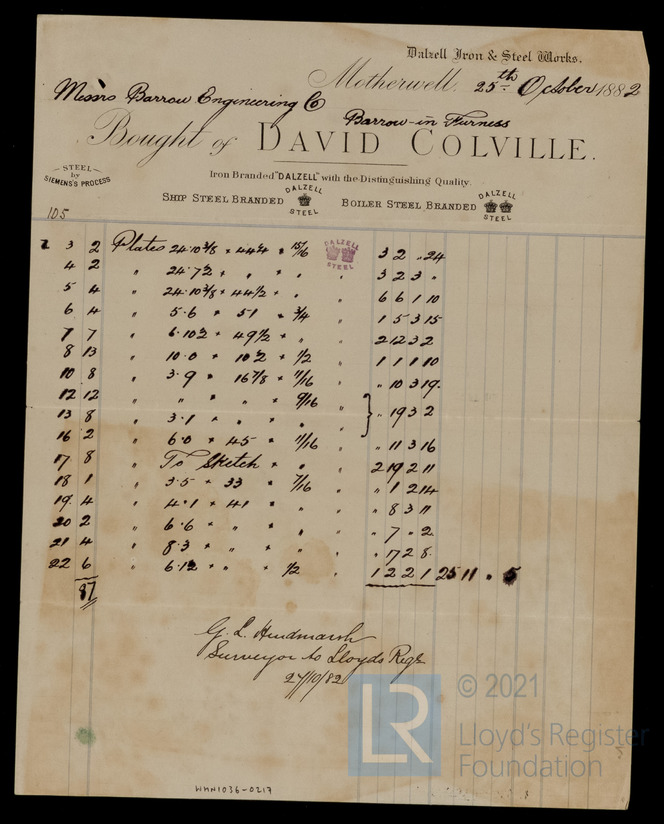 Dalzell Iron & Steel Works.
Motherwell. 25th October 1882
Messrs Barrow Engineering Co
Barrow-in Furness
Bought of DAVID COLVILLE.
STEEL by SIEMENS'S PROCESS
Iron Branded "DALZELL" with the Distinguishing Quality.
SHIP STEEL BRANDED DALZELL STEEL BOILER STEEL BRANDED DALZELL STEEL
105
3 2 Plates 24.10 3/8 × 44 × 15/16 DALZELL STEEL 3 2 " 24
4 2 " 24.7 " " " 3 2 3 "
5 4 " 24.10 3/8 × 44 1/2 × " " 6 6 1 10
6 4 " 5.6 × 51 × 3/4 " 1 5 3 15
7 7 " 6.10 × 49 1/2 × " " 2 12 3 2
8 13 " 10.0 × 10 × 1/2 " 1 1 1 10
10 8 " 3.9 × 16 7/8 × 11/16 " " 10 3 19
12 12 " " " " 9/16 "
13 8 " 3.1 × " " " " 19 3 2
16 2 " 6.0 × 45 × 11/16 " " 11 3 16
17 8 " To Sketch × " " 2 19 2 11
18 1 " 3.5 × 33 × 7/16 " " 1 2 14
19 4 " 4.1 × 41 × " " " 8 3 11
20 2 " 6.6 × " × " " " 7 " 2
21 4 " 8.3 × " × " " " 17 2 8
22 6 " 6.12 × " × 1/2 " 1 2 2 1 25 11 " 5
87
G. L. Hindmarsh
Surveyor to Lloyds Regr
27/10/82
LR © 2021
Lloyd's Register
Foundation
WHN1036-0217